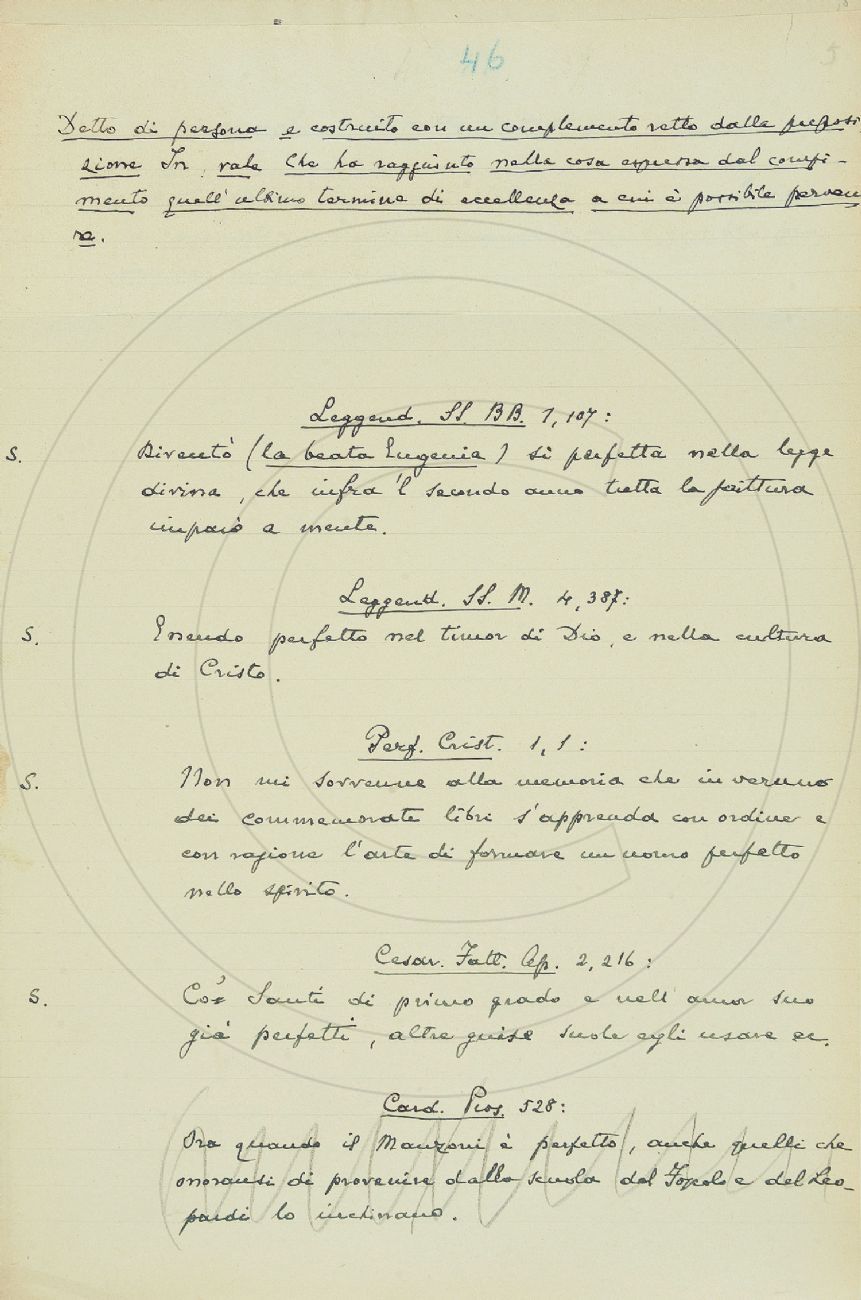 46
5
Detto di persona e costruito con un complemento retto dalla preposi
zione In, vale Che ha raggiunto nella cosa espressa dal compi-
mento quell'ultimo termine di eccellenza a cui è possibile perveni
re.
Leggend. SS. BB. 1, 107:
S. Diventò (la beata Eugenia) sì perfetta nella legge
divina, che infra 'l secondo anno tutta la scrittura
imparò a mente.
Leggend. SS. M. 4, 387:
S. Essendo perfetto nel timor di Dio, e nella cultura
di Cristo.
Perf. Crist. 1, 1:
S. Non mi sovvenne alla memoria che in veruno
dei commemorati libri s'apprenda con ordine e
con ragione l'arte di formare un uomo perfetto
nello spirito.
Cesar. Fatt. Ap. 2, 216:
S. Co' Santi di primo grado e nell'amor suo
già perfetti, altre guise suole egli usare ec.
Card. Pros. 528:
Ora quando il Manzoni è perfetto, anche quelli che
onoransi di provenire dalla scuola del Foscolo e del Leo-
pardi lo inchinano.